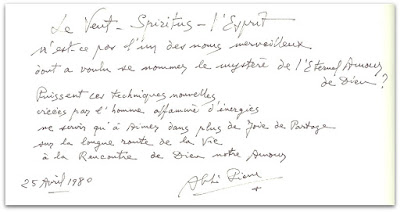 Le Vent - Spiritus - l'Esprit
n'est-ce pas l'un des noms merveilleux
dont a voulu se nommer le mystère de l'Eternel Amour
de Dieu ?
Puissent ces techniques nouvelles
créées par l'homme affammé d'énergies
ne servir qu'à Aimer dans plus de Joie de Partage
sur la longue route de la Vie
à la Rencontre de Dieu notre Amour
25 Avril 1980
Abbé Pierre